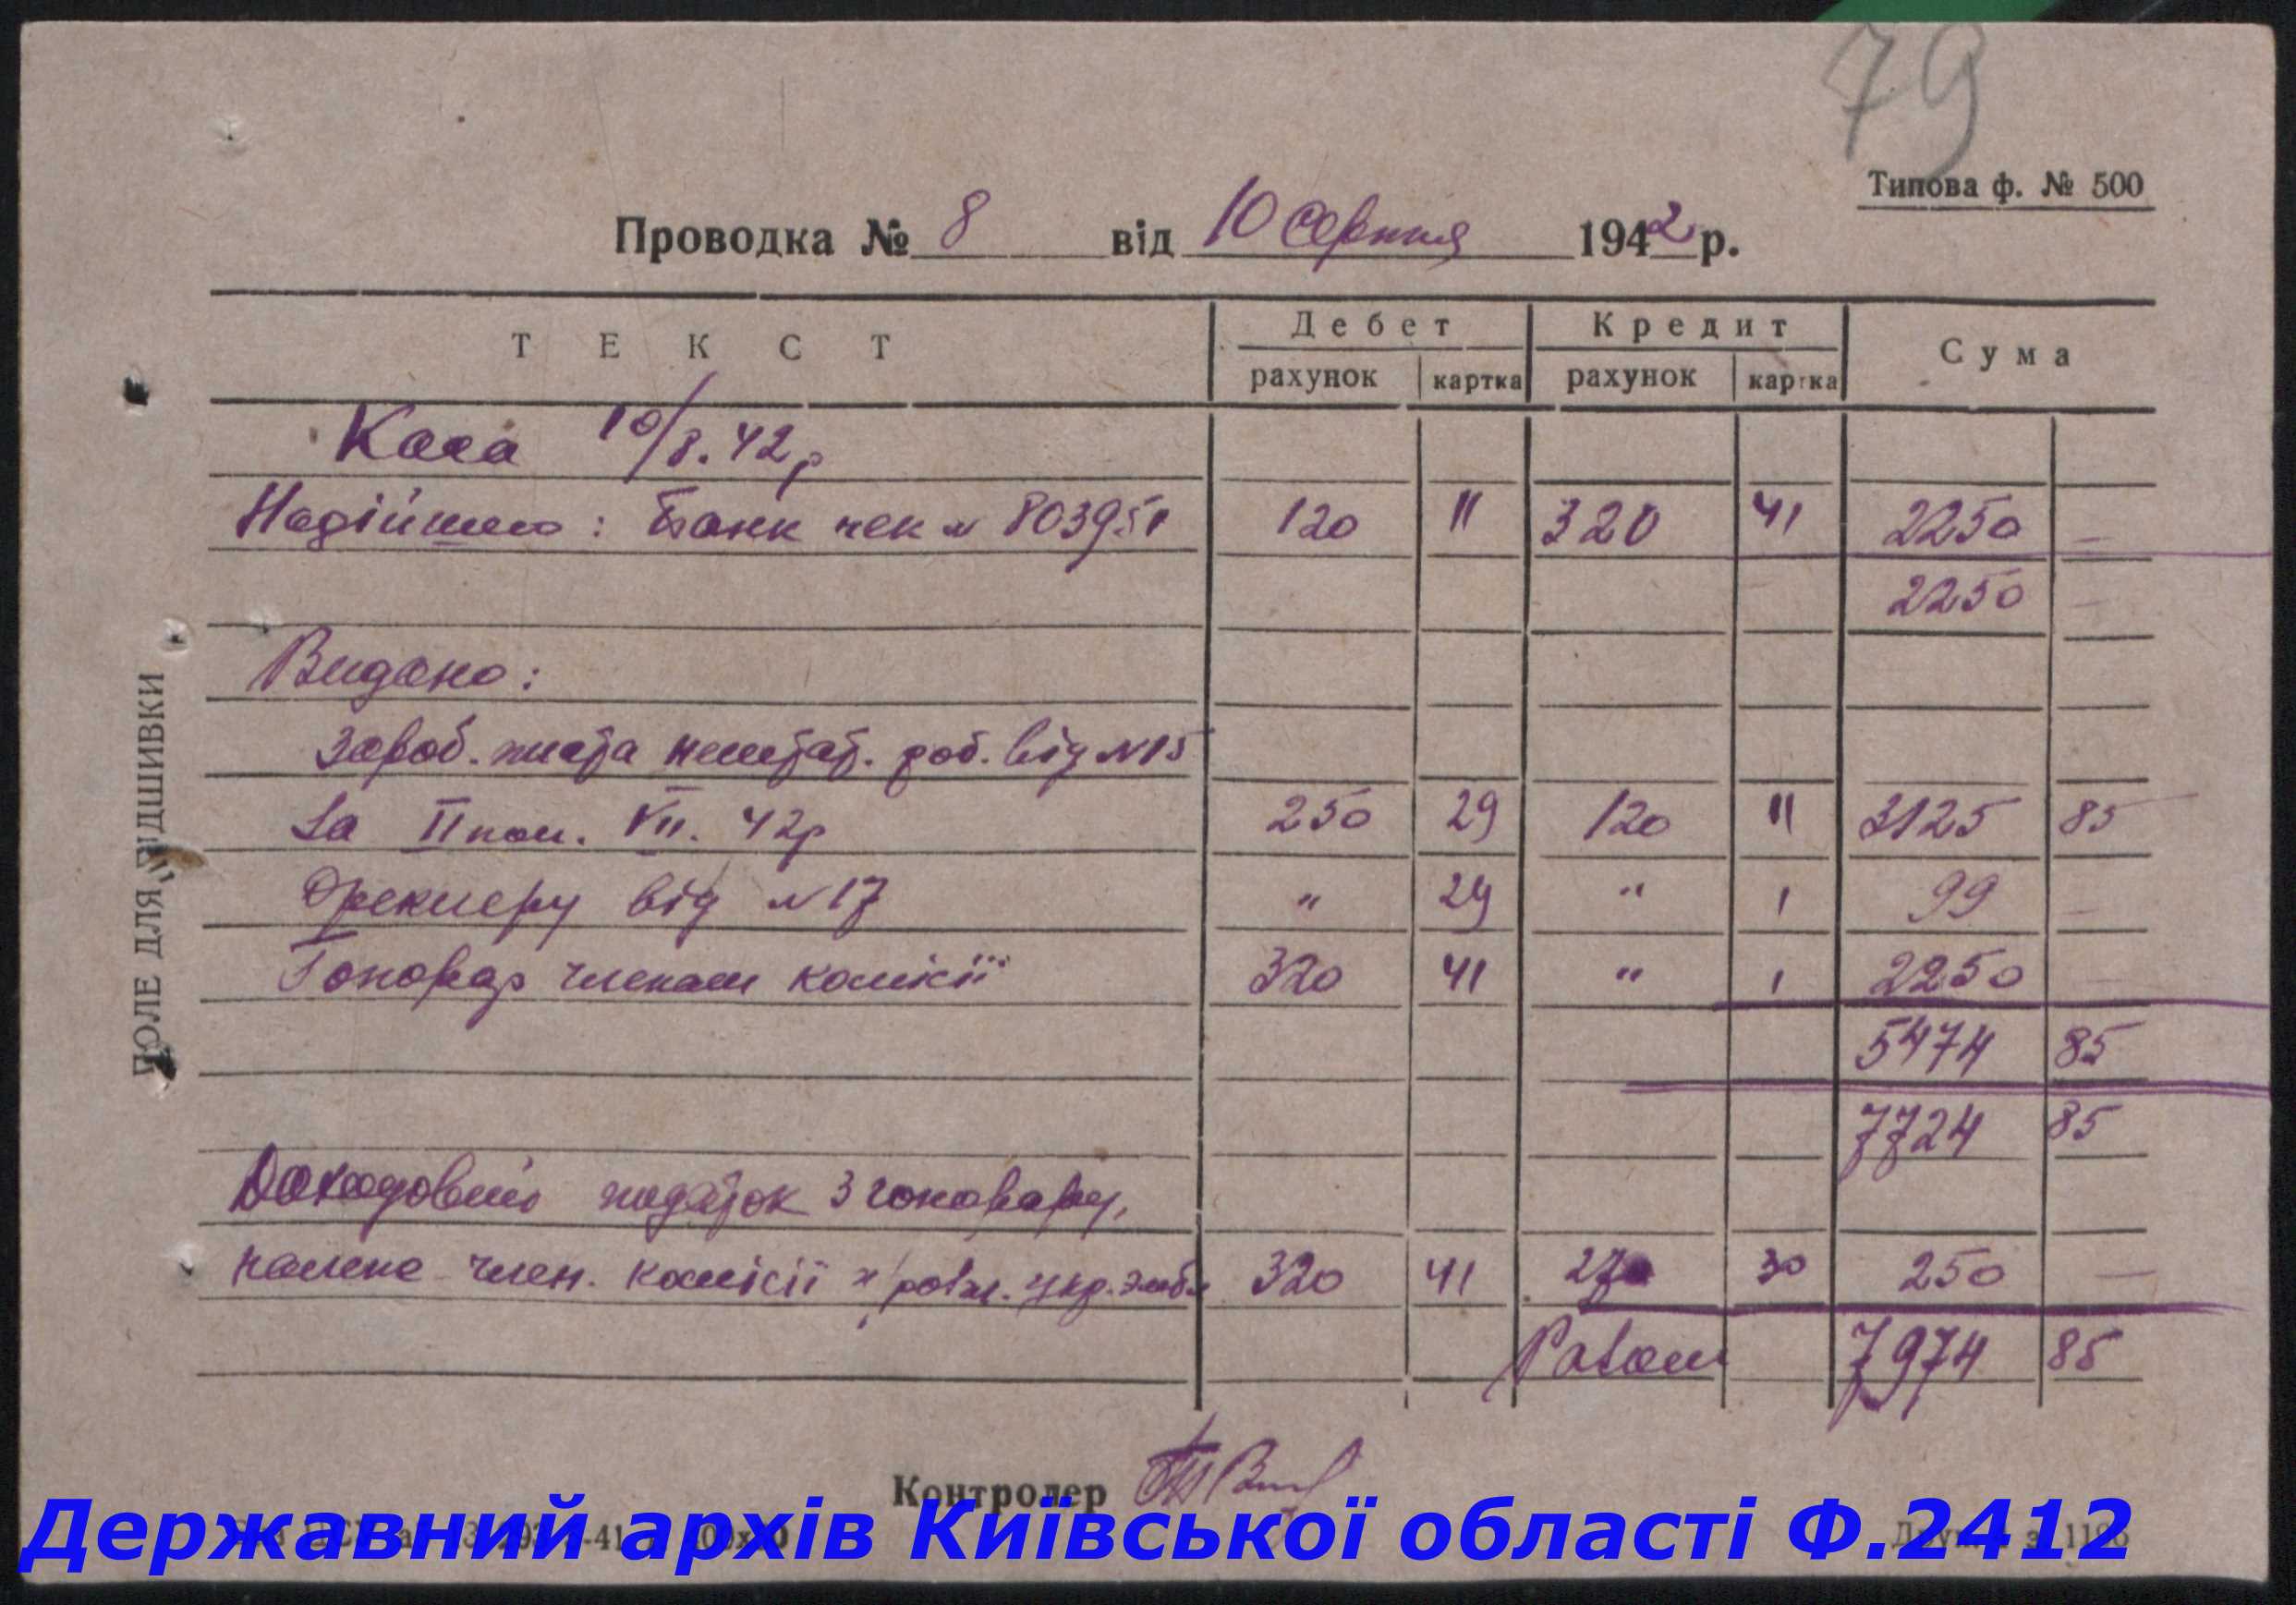 79
Типова ф. № 500
Проводка № 8 від 10 серпня 1942 р.
ТЕКСТ Дебет Кредит Сума
рахунок картка рахунок картка
Каса 10/8.42р
Надійшло: Банк чек № 803951 120 11 320 41 2250 —
2250 —
Видано:
Зароб. плата нештат. роб. від №15
За II пол. VII. 42р 250 29 120 11 3125 85
від №17 " 29 " 1 99 —
Гонорар членам комісії 320 41 " 1 2250 —
5474 85
7724 85
Доходовий податок з гонорару,
член. комісії 320 41 270 30 250 —
Разом 7974 85
Контролер
ПОЛЕ ДЛЯ ПІДШИВКИ
Державний архів Київської області Ф.2412